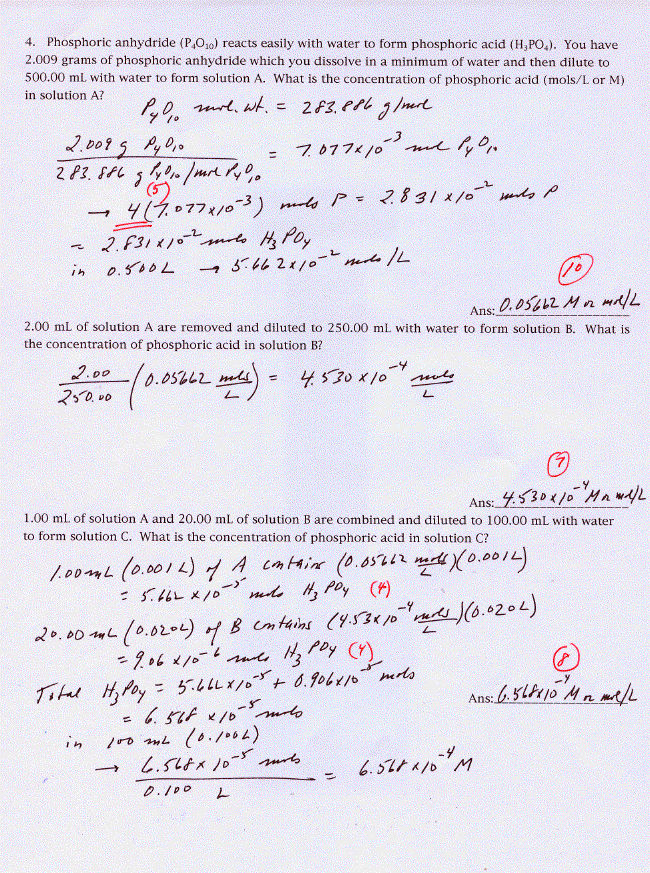 4. Phosphoric anhydride (P₄O₁₀) reacts easily with water to form phosphoric acid (H₃PO₄). You have
2.009 grams of phosphoric anhydride which you dissolve in a minimum of water and then dilute to
500.00 mL with water to form solution A. What is the concentration of phosphoric acid (mols/L or M)
in solution A?
P₄O₁₀ mol. wt. = 283.886 g/mol
2.009 g P₄O₁₀
= 7.077x10⁻³ mol P₄O₁₀
283.886 g P₄O₁₀/mol P₄O₁₀
(5)
→ 4(7.077x10⁻³) mols P = 2.831 x10⁻² mols P
= 2.831x10⁻² mols H₃PO₄
in 0.500L → 5.662x10⁻² mols/L
10
Ans: 0.05662 M or mol/L
2.00 mL of solution A are removed and diluted to 250.00 mL with water to form solution B. What is
the concentration of phosphoric acid in solution B?
2.00
250.00
(0.05662 mols/L) = 4.530 x10⁻⁴ mols/L
7
Ans: 4.530x10⁻⁴ M or mol/L
1.00 mL of solution A and 20.00 mL of solution B are combined and diluted to 100.00 mL with water
to form solution C. What is the concentration of phosphoric acid in solution C?
1.00mL (0.001L) of A contains (0.05662 mols/L)(0.001L)
= 5.662 x10⁻⁵ mols H₃PO₄ (4)
20.00 mL (0.020L) of B contains (4.53x10⁻⁴ mols/L)(0.020L)
= 9.06 x10⁻⁶ mols H₃PO₄ (4)
8
Total H₃PO₄ = 5.662x10⁻⁵ + 0.906x10⁻⁵ mols
Ans: 6.568x10⁻⁴ M or mol/L
= 6.568 x10⁻⁵ mols
in 100 mL (0.100L)
→ 6.568x10⁻⁵ mols
= 6.568x10⁻⁴ M
0.100 L